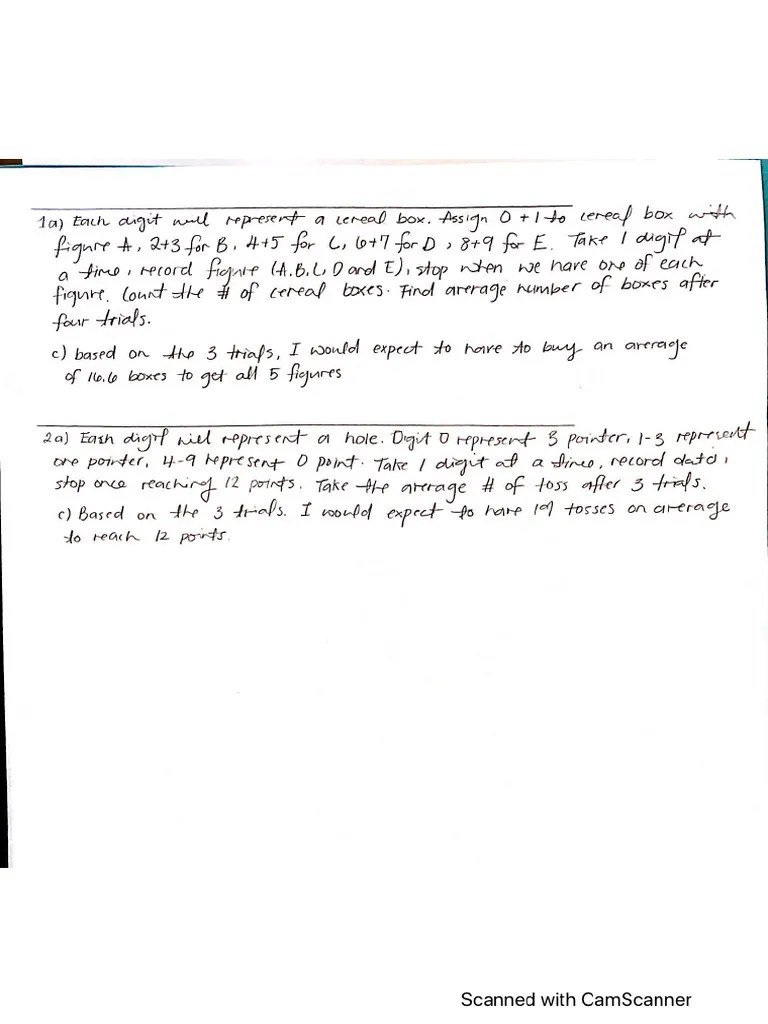 1a) Each digit will represent a cereal box. Assign 0 + 1 to cereal box with
figure A, 2+3 for B, 4+5 for C, 6+7 for D, 8+9 for E. Take 1 digit at
a time, record figure (A,B,C,D and E), stop when we have one of each
figure. Count the # of cereal boxes. Find average number of boxes after
four trials.
c) based on the 3 trials, I would expect to have to buy an average
of 16.6 boxes to get all 5 figures
2a) Each digit will represent a hole. Digit 0 represent 3 pointer, 1-3 represent
one pointer, 4-9 represent 0 point. Take 1 digit at a time, record data,
stop once reaching 12 points. Take the average # of toss after 3 trials.
c) Based on the 3 trials. I would expect to have 19 tosses on average
to reach 12 points.
Scanned with CamScanner